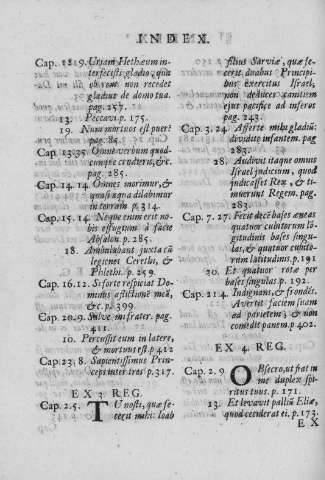 INDEX.
Cap. 12. 9. Uriam Hethæum in-
terfecisti gladio, quã
ob rem non recedet
gladius de domo tua.
pag. 257.
13. Peccavi p. 175.
19. Num mortuus est puer?
pag. 85.
Cap. 13. 35. Omne verbum quod-
cunque
pag. 285.
Cap. 14. 14. Omnes morimur, &
quasi aqua dilabimur
in terram p. 314.
Cap. 15. 14. Neque enim erit no-
bis effugium à facie
Absalon. p. 285.
18. Ambulabant juxta eũ
legiones Cerethi, &
Phlethi. p. 259.
Cap. 16. 12. Si forte respiciat Do-
minus afflictionẽ meã,
&c. p. 399.
Cap. 20. 9. Salve mi frater. pag.
411.
10. Percussit eum in latere,
& mortuus est p. 412
Cap. 23. 8. Sapientissimus Prin-
ceps inter tres p. 317.
EX 3. REG.
Cap. 2. 5. TU nosti, quæ fe-
cerit mihi: Ioab
filius Sarviæ, quæ fe-
cerit duobus Principi-
bus exercitus Israel,
non deduces canitiem
ejus pacifice ad inferos
pag. 243.
Cap. 3. 24. Afferte mihi gladiũ:
dividite infantem. pag
283.
28. Audivit itaque omnis
Israel judicium, quod
judicasset Rex, & ti-
muerunt Regem. pag.
283.
Cap. 7. 27. Fecit decẽ bases æneas
quatuor cubitorum lõ-
gitudinis bases singu-
las, & quatuor cubito-
rum latitudinis. p. 191
30. Et quatuor rotæ per
bases singulas p. 192.
Cap. 21. 4. Indignans, & frendẽs,
Avertit faciem suam
ad parietem; & non
comedit panem. p. 402.
EX 4. REG.
Cap. 2. 9. OBsecro, ut fiat in
me duplex spi-
ritus tuus. p. 171.
13. Et levavit palliũ Eliæ,
quod ceciderat ei. p. 173.
EX